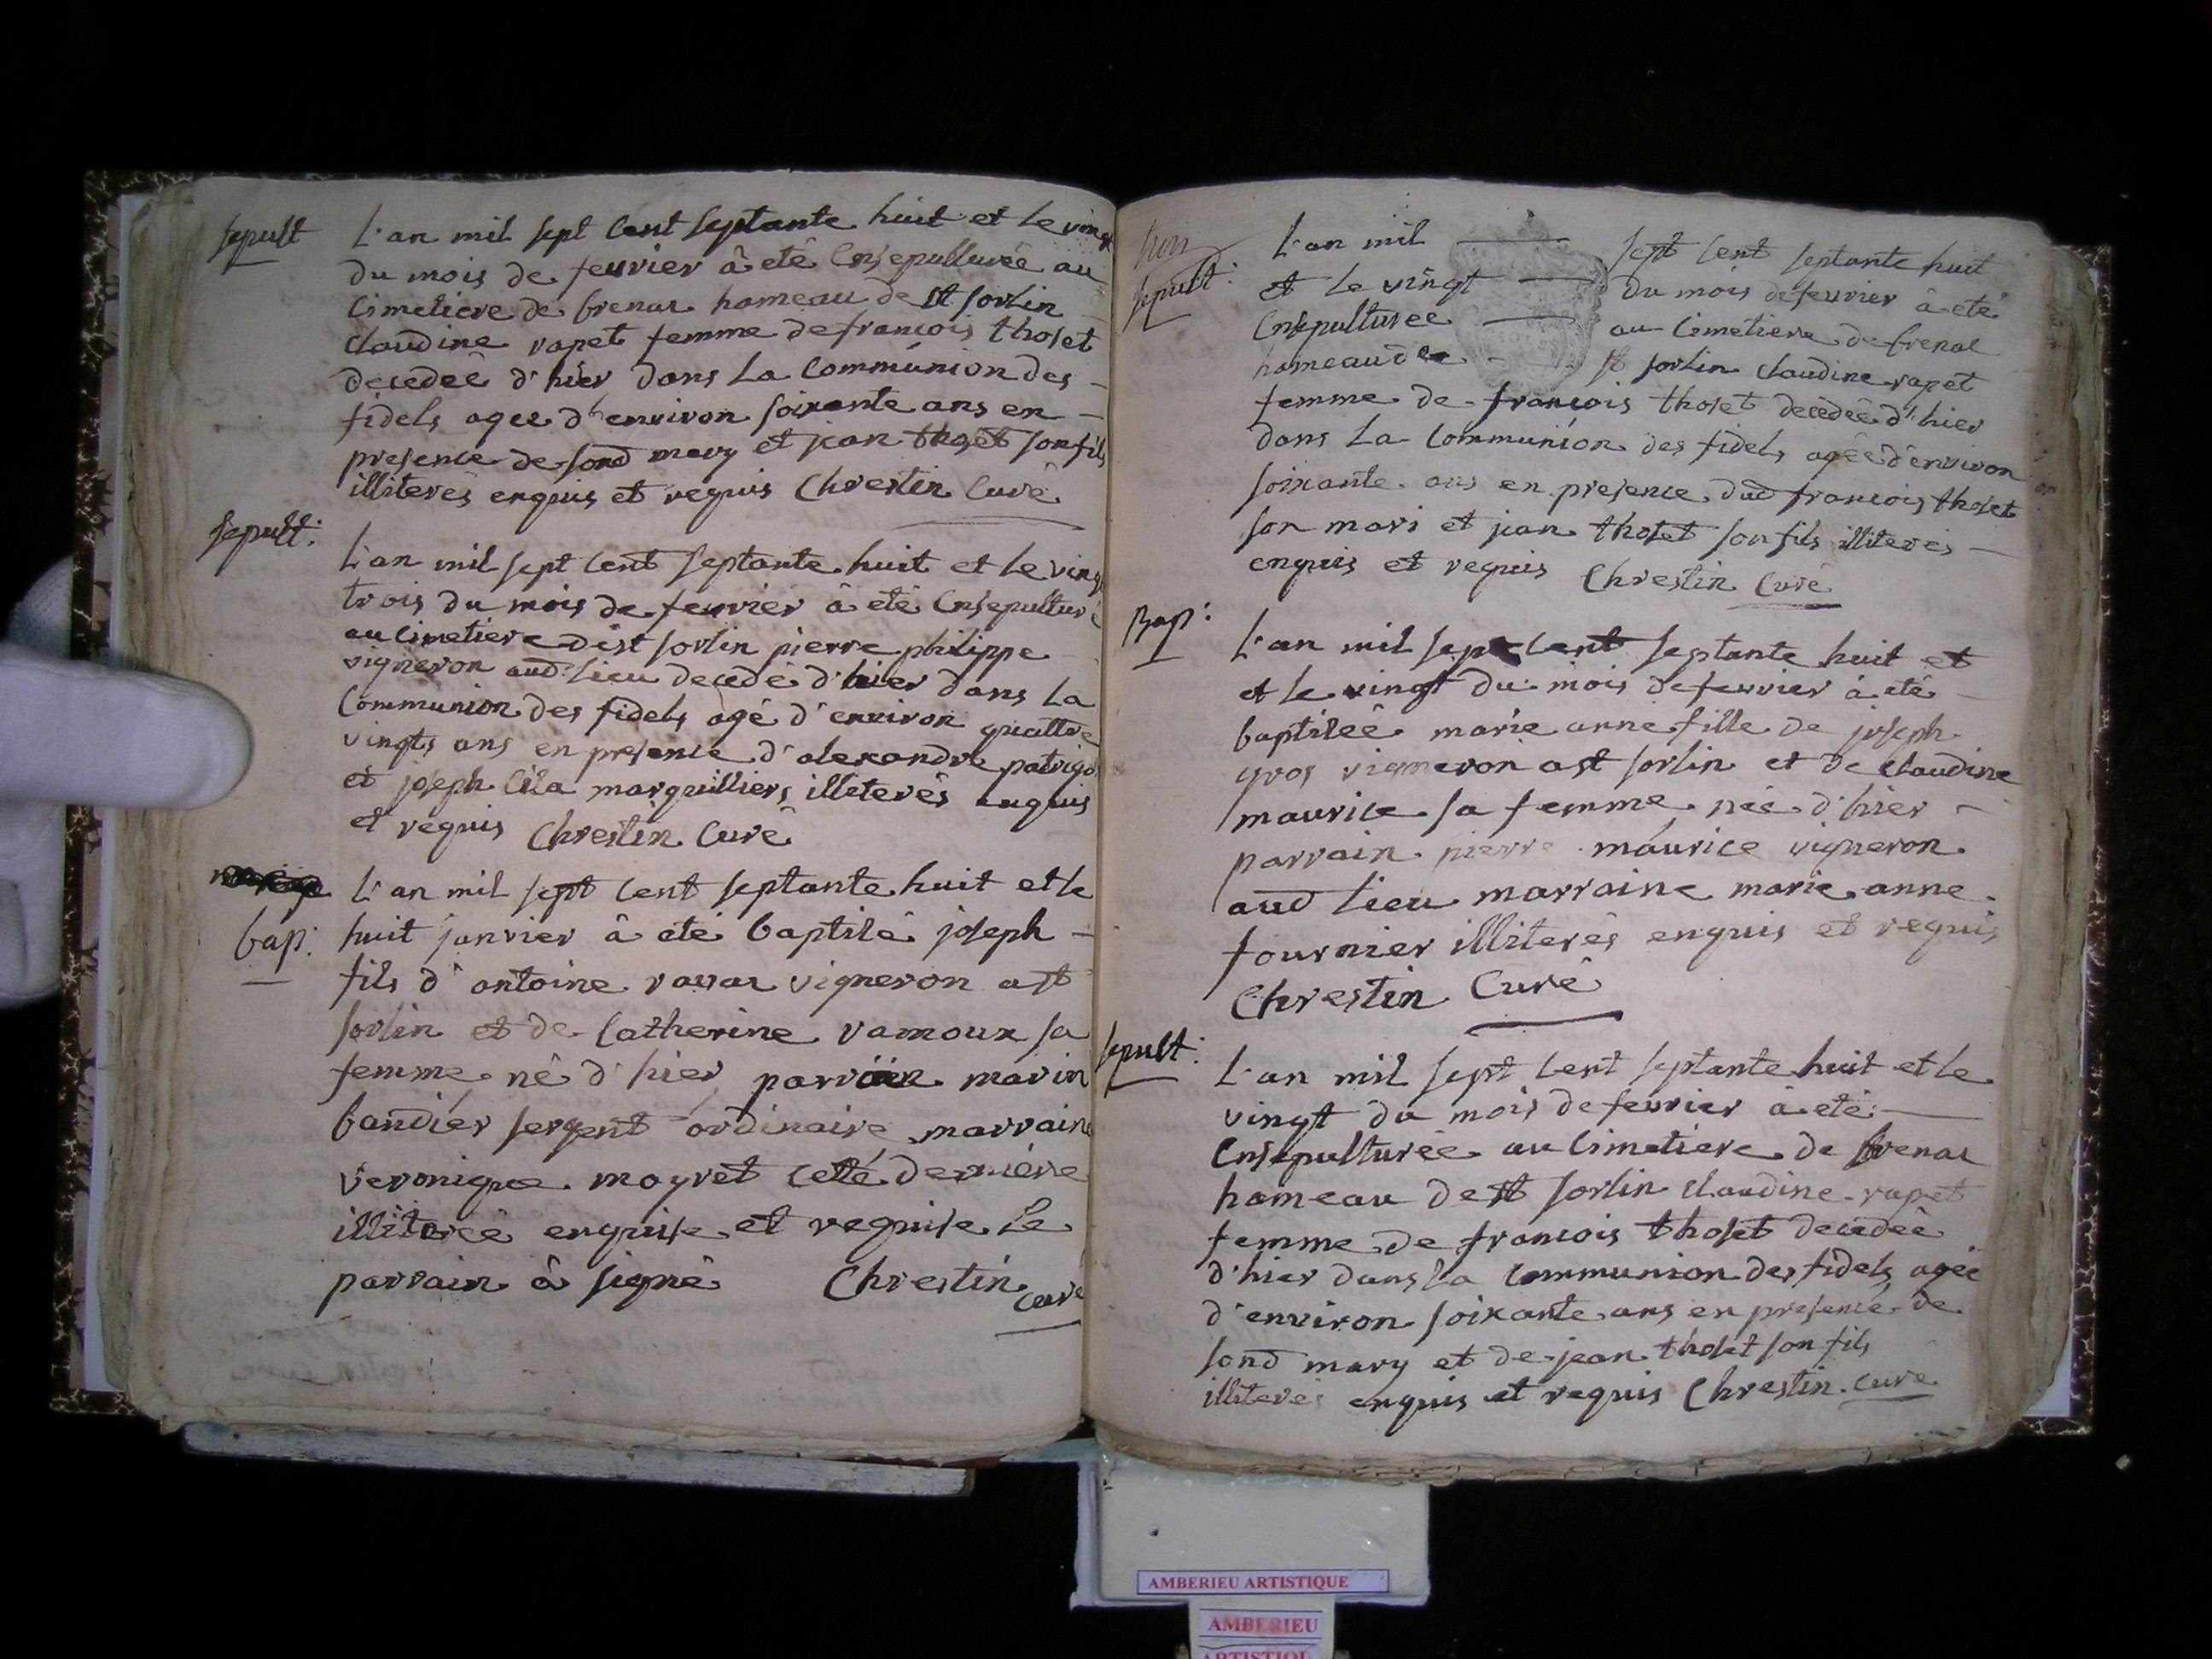 sepult
L'an mil sept cent septante huit et le vingt
du mois de feuvrier â etê ensepulturêe au
cimetiere de frenas hameau de st sorlin
claudine rapet femme de francois thoset
decedeê d'hier dans la communion des -
fidels agee d'environ soixante ans en -
presence de sond mary et jean thoset son fils
illiterês enquis et requis Chrestin Curê
sepult:
L'an mil sept cent septante huit et le vingt
trois du mois de feuvrier â etê ensepulturê
au cimetiere dest sorlin pierre philippe
vigneron aud: lieu decedê d'hier dans la
communion des fidels agê d'environ quattre
vingts ans en presence d'alexandre
et joseph marguilliers illiterês enquis
et requis Chrestin Curê
bap:
L'an mil sept cent septante huit et le
huit janvier â etê baptisê joseph -
fils d'antoine vigneron ast
sorlin et de Catherine ramoux sa
femme nê d'hier parrain marin
bandier sergent ordinaire marraine
veronique moyret cette derniére
illitereê enquise et requise le
parrain â signê Chrestin
curé
sepult:
L'an mil sept cent septante huit
et le vingt du mois de feuvrier â etê
ensepulturee au cimetiere de frenas
hameau de st sorlin claudine rapet
femme de francois thoset decedeê d'hier
dans la communion des fidels agêe d'environ
soixante ans en presence dud francois thoset
son mari et jean thoset son fils illiterês -
enquis et requis Chrestin Curê
Bap:
L'an mil sept cent septante huit et
et le vingt du mois de feuvrier â etê
baptiseê marie anne fille de joseph
gros vigneron ast sorlin et de claudine
maurice sa femme neê d'hier -
parrain pierre maurice vigneron
aud lieu marraine marie anne
fournier illiterês enquis et requis
Chrestin Curê
sepult:
L'an mil sept cent septante huit et le
vingt du mois de feuvrier â etê
ensepulturêe au cimetiere de frenas
hameau de st sorlin claudine rapet
femme de francois thoset decedeê
d'hier dans la communion des fidels agêe
d'environ soixante ans en presence de
sond mary et de jean thoset son fils
illiterês enquis et requis Chrestin curé
AMBERIEU ARTISTIQUE
AMBERIEU